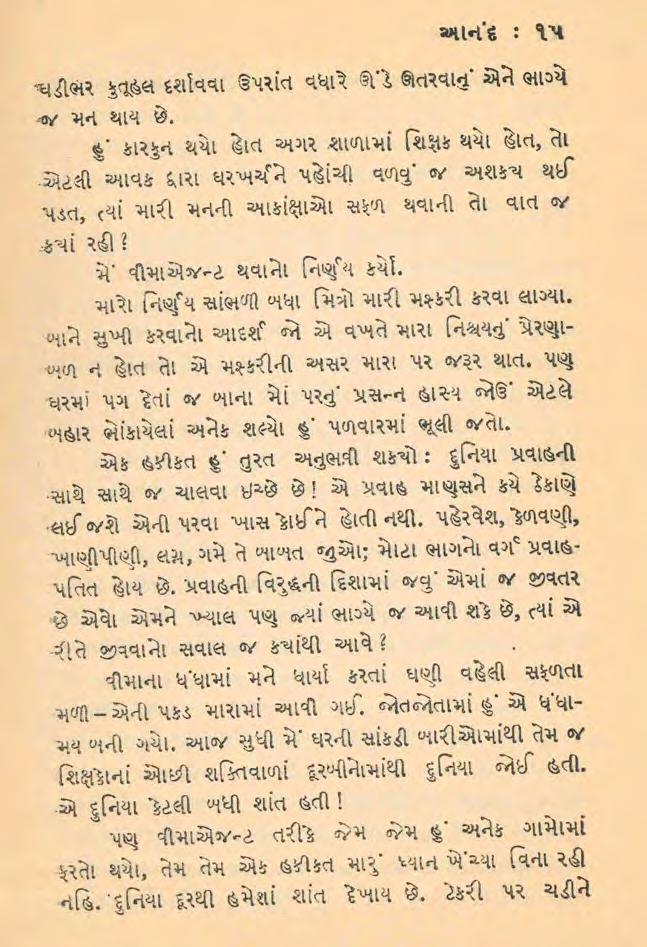 આનંદ : ૧૫
ઘડીભર કુતૂહલ દર્શાવવા ઉપરાંત વધારે ઊંડે ઊતરવાનું એને ભાગ્યે
જ મન થાય છે.
હું કારકુન થયો હોત અગર શાળામાં શિક્ષક થયો હોત, તો
એટલી આવક દ્વારા ઘરખર્ચને પહોંચી વળવું જ અશક્ય થઈ
પડત, ત્યાં મારી મનની આકાંક્ષાઓ સફળ થવાની તો વાત જ
ક્યાં રહી?
મેં વીમાએજન્ટ થવાનો નિર્ણય કર્યો.
મારો નિર્ણય સાંભળી બધા મિત્રો મારી મશ્કરી કરવા લાગ્યા.
બાને સુખી કરવાનો આદર્શ જો એ વખતે મારા નિશ્ચયનું પ્રેરણા-
બળ ન હોત તો એ મશ્કરીની અસર મારા પર જરૂર થાત. પણ
ઘરમાં પગ દેતાં જ બાના મોં પરનું પ્રસન્ન હાસ્ય જોઉં એટલે
બહાર ભોંકાયેલાં અનેક શલ્યો હું પળવારમાં ભૂલી જતો.
એક હકીકત હું તુરત અનુભવી શક્યો : દુનિયા પ્રવાહની
સાથે સાથે જ ચાલવા ઇચ્છે છે! એ પ્રવાહ માણસને કયે ઠેકાણે
લઈ જશે એની પરવા ખાસ કોઈને હોતી નથી. પહેરવેશ, કેળવણી,
ખાણીપીણી, લગ્ન, ગમે તે બાબત જુઓ; મોટા ભાગનો વર્ગ પ્રવાહ-
પતિત હોય છે. પ્રવાહની વિરુદ્ધની દિશામાં જવું એમાં જ જીવતર
છે એવો એમને ખ્યાલ પણ જ્યાં ભાગ્યે જ આવી શકે છે, ત્યાં એ
રીતે જીવવાનો સવાલ જ ક્યાંથી આવે?
વીમાના ધંધામાં મને ધાર્યા કરતાં ઘણી વહેલી સફળતા
મળી – એની પકડ મારામાં આવી ગઈ. જોતજોતામાં હું એ ધંધા-
મય બની ગયો. આજ સુધી મેં ઘરની સાંકડી બારીઓમાંથી તેમ જ
શિક્ષકોનાં ઓછી શક્તિવાળાં દૂરબીનોમાંથી દુનિયા જોઈ હતી.
એ દુનિયા કેટલી બધી શાંત હતી!
પણ વીમાએજન્ટ તરીકે જેમ જેમ હું અનેક ગામોમાં
ફરતો થયો, તેમ તેમ એક હકીકત મારું ધ્યાન ખેંચ્યા વિના રહી
નહિ. દુનિયા દૂરથી હમેશાં શાંત દેખાય છે. ટેકરી પર ચડીને